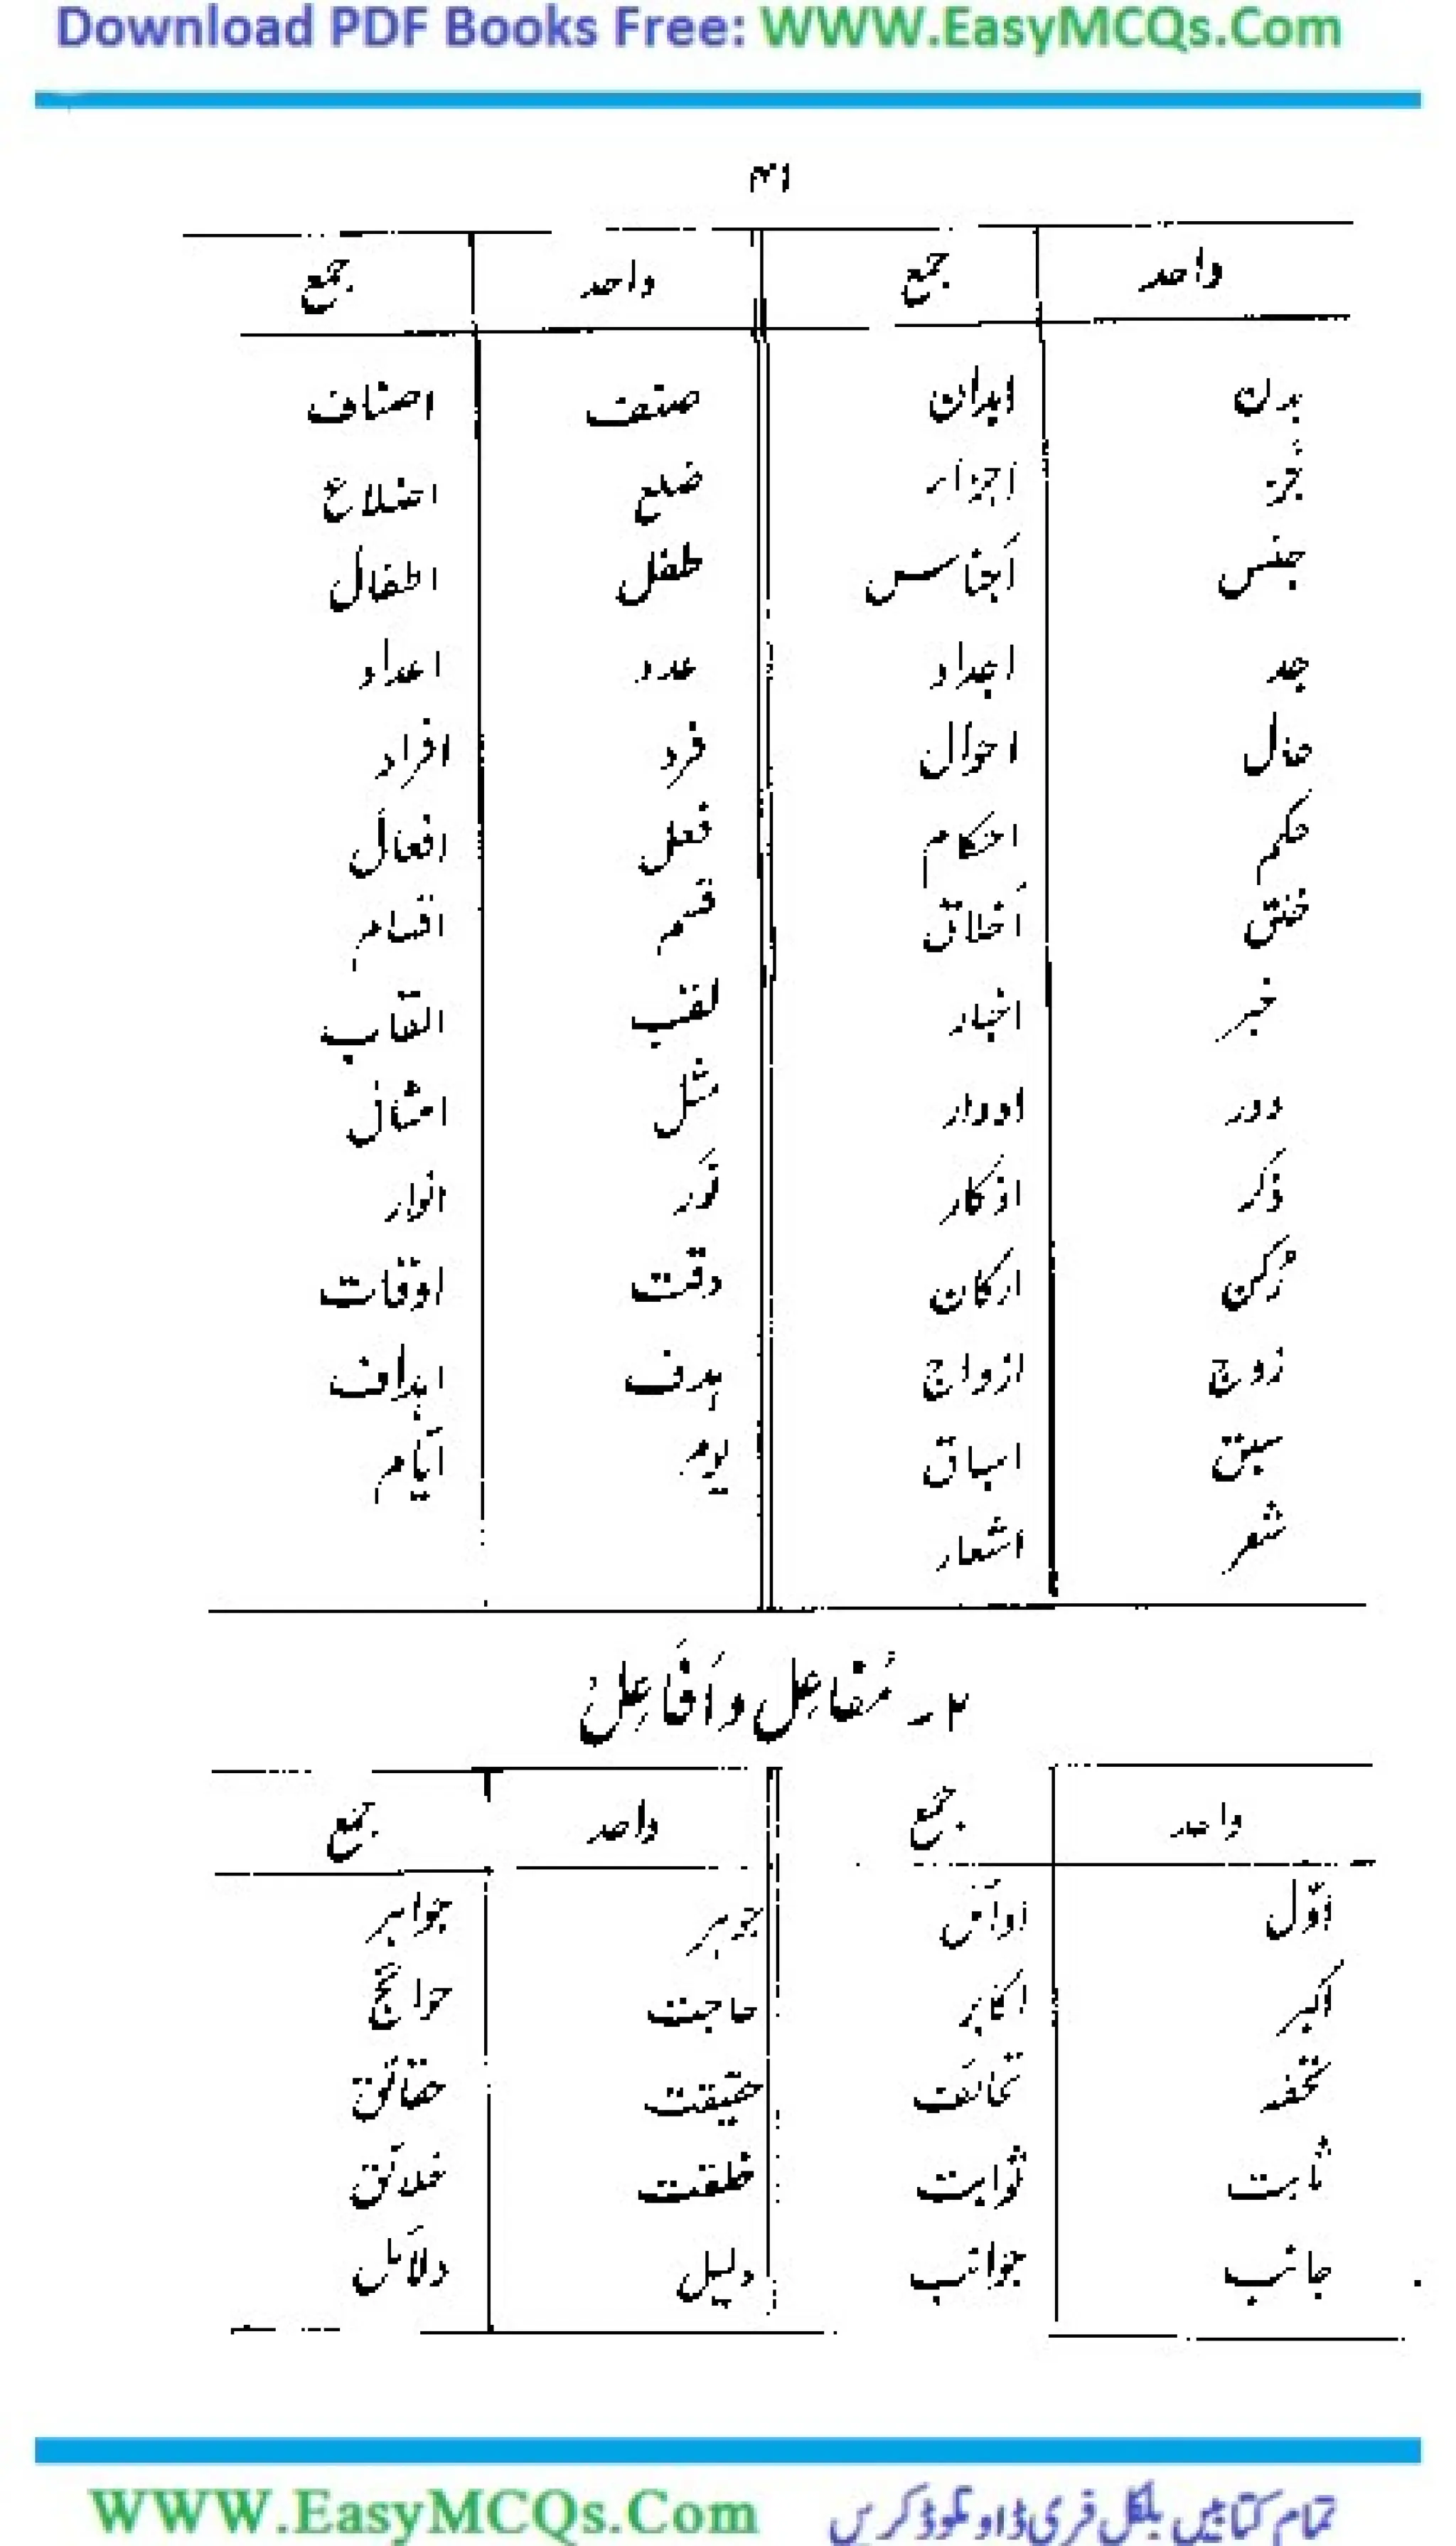 Download PDF Books Free: WWW.EasyMCQs.Com
۴۱
واحد جمع واحد جمع
بدن ابدان صنف اصناف
جُز اجزار ضلع اضلاع
جنس اَجناس طفل اطفال
جد اجداد عدد اعداد
حال احوال فرد افراد
حکم احکام فعل افعال
خلق اَخلاق قسم اقسام
خبر اخبار لقب القاب
دور ادوار مثل امثال
ذکر اذکار نَور انوار
رُکن ارکان وقت اوقات
زوج ازواج ہدف اہداف
سبق اسباق یوم ایّام
شعر اشعار
۲۔ مُفاعِل و اَفَاعِل
واحد جمع واحد جمع
اوّل اوائل جوہر جواہر
اکبر اکابر حاجت حوائج
تحفہ تحائف حقیقت حقائق
ثابت ثوابت خلقت خلائق
جانب جوانب دلیل دلائل
WWW.EasyMCQs.Com تمام کتابیں بلکل فری ڈاونلوڈ کریں